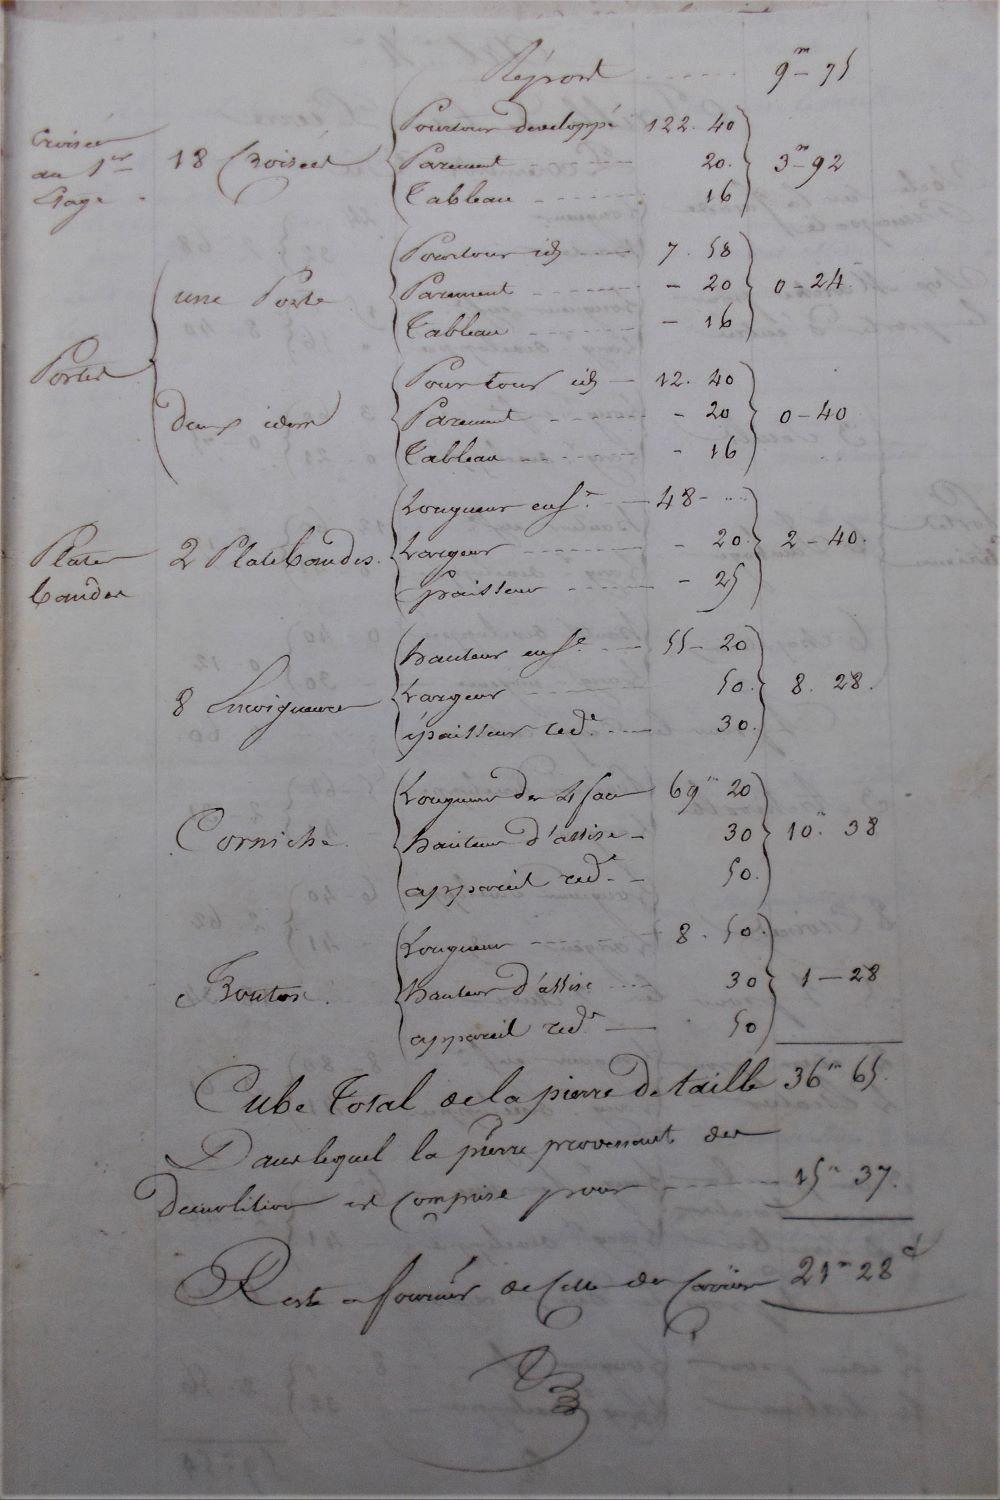 Report ..... 9m - 75
Croisées au 1er Etage
18 Croisées
Pourtour développé 122. 40
Parement 20. 3m - 92
Tableau 16
Portes
une Porte
Pourtour id 7. 58
Parement - 20 0 - 24.
Tableau - 16
deux idem
Pourtour id 12. 40
Parement - 20 0 - 40
Tableau - 16
Plates bandes
2 Platebandes.
Longueur ense. 48 -
Largeur - 20. 2 - 40.
Epaisseur - 25
8 Encoignures
hauteur ense. 55 - 20
Largeur 50. 8. 28.
épaisseur réde. 30.
Corniche.
Longueur des 4 faces 69m 20
hauteur d'assise - 30 10m 38
appareil réd. - 50.
Longueur 8. 50.
hauteur d'assise 30 1 - 28
appareil réd. 50
Cube Total de la pierre de taille 36m 65.
Dans lequel la pierre provenant des
Demolition est comprise pour 15m 37.
Reste a fournir de Celle des Carrière 21m 28c